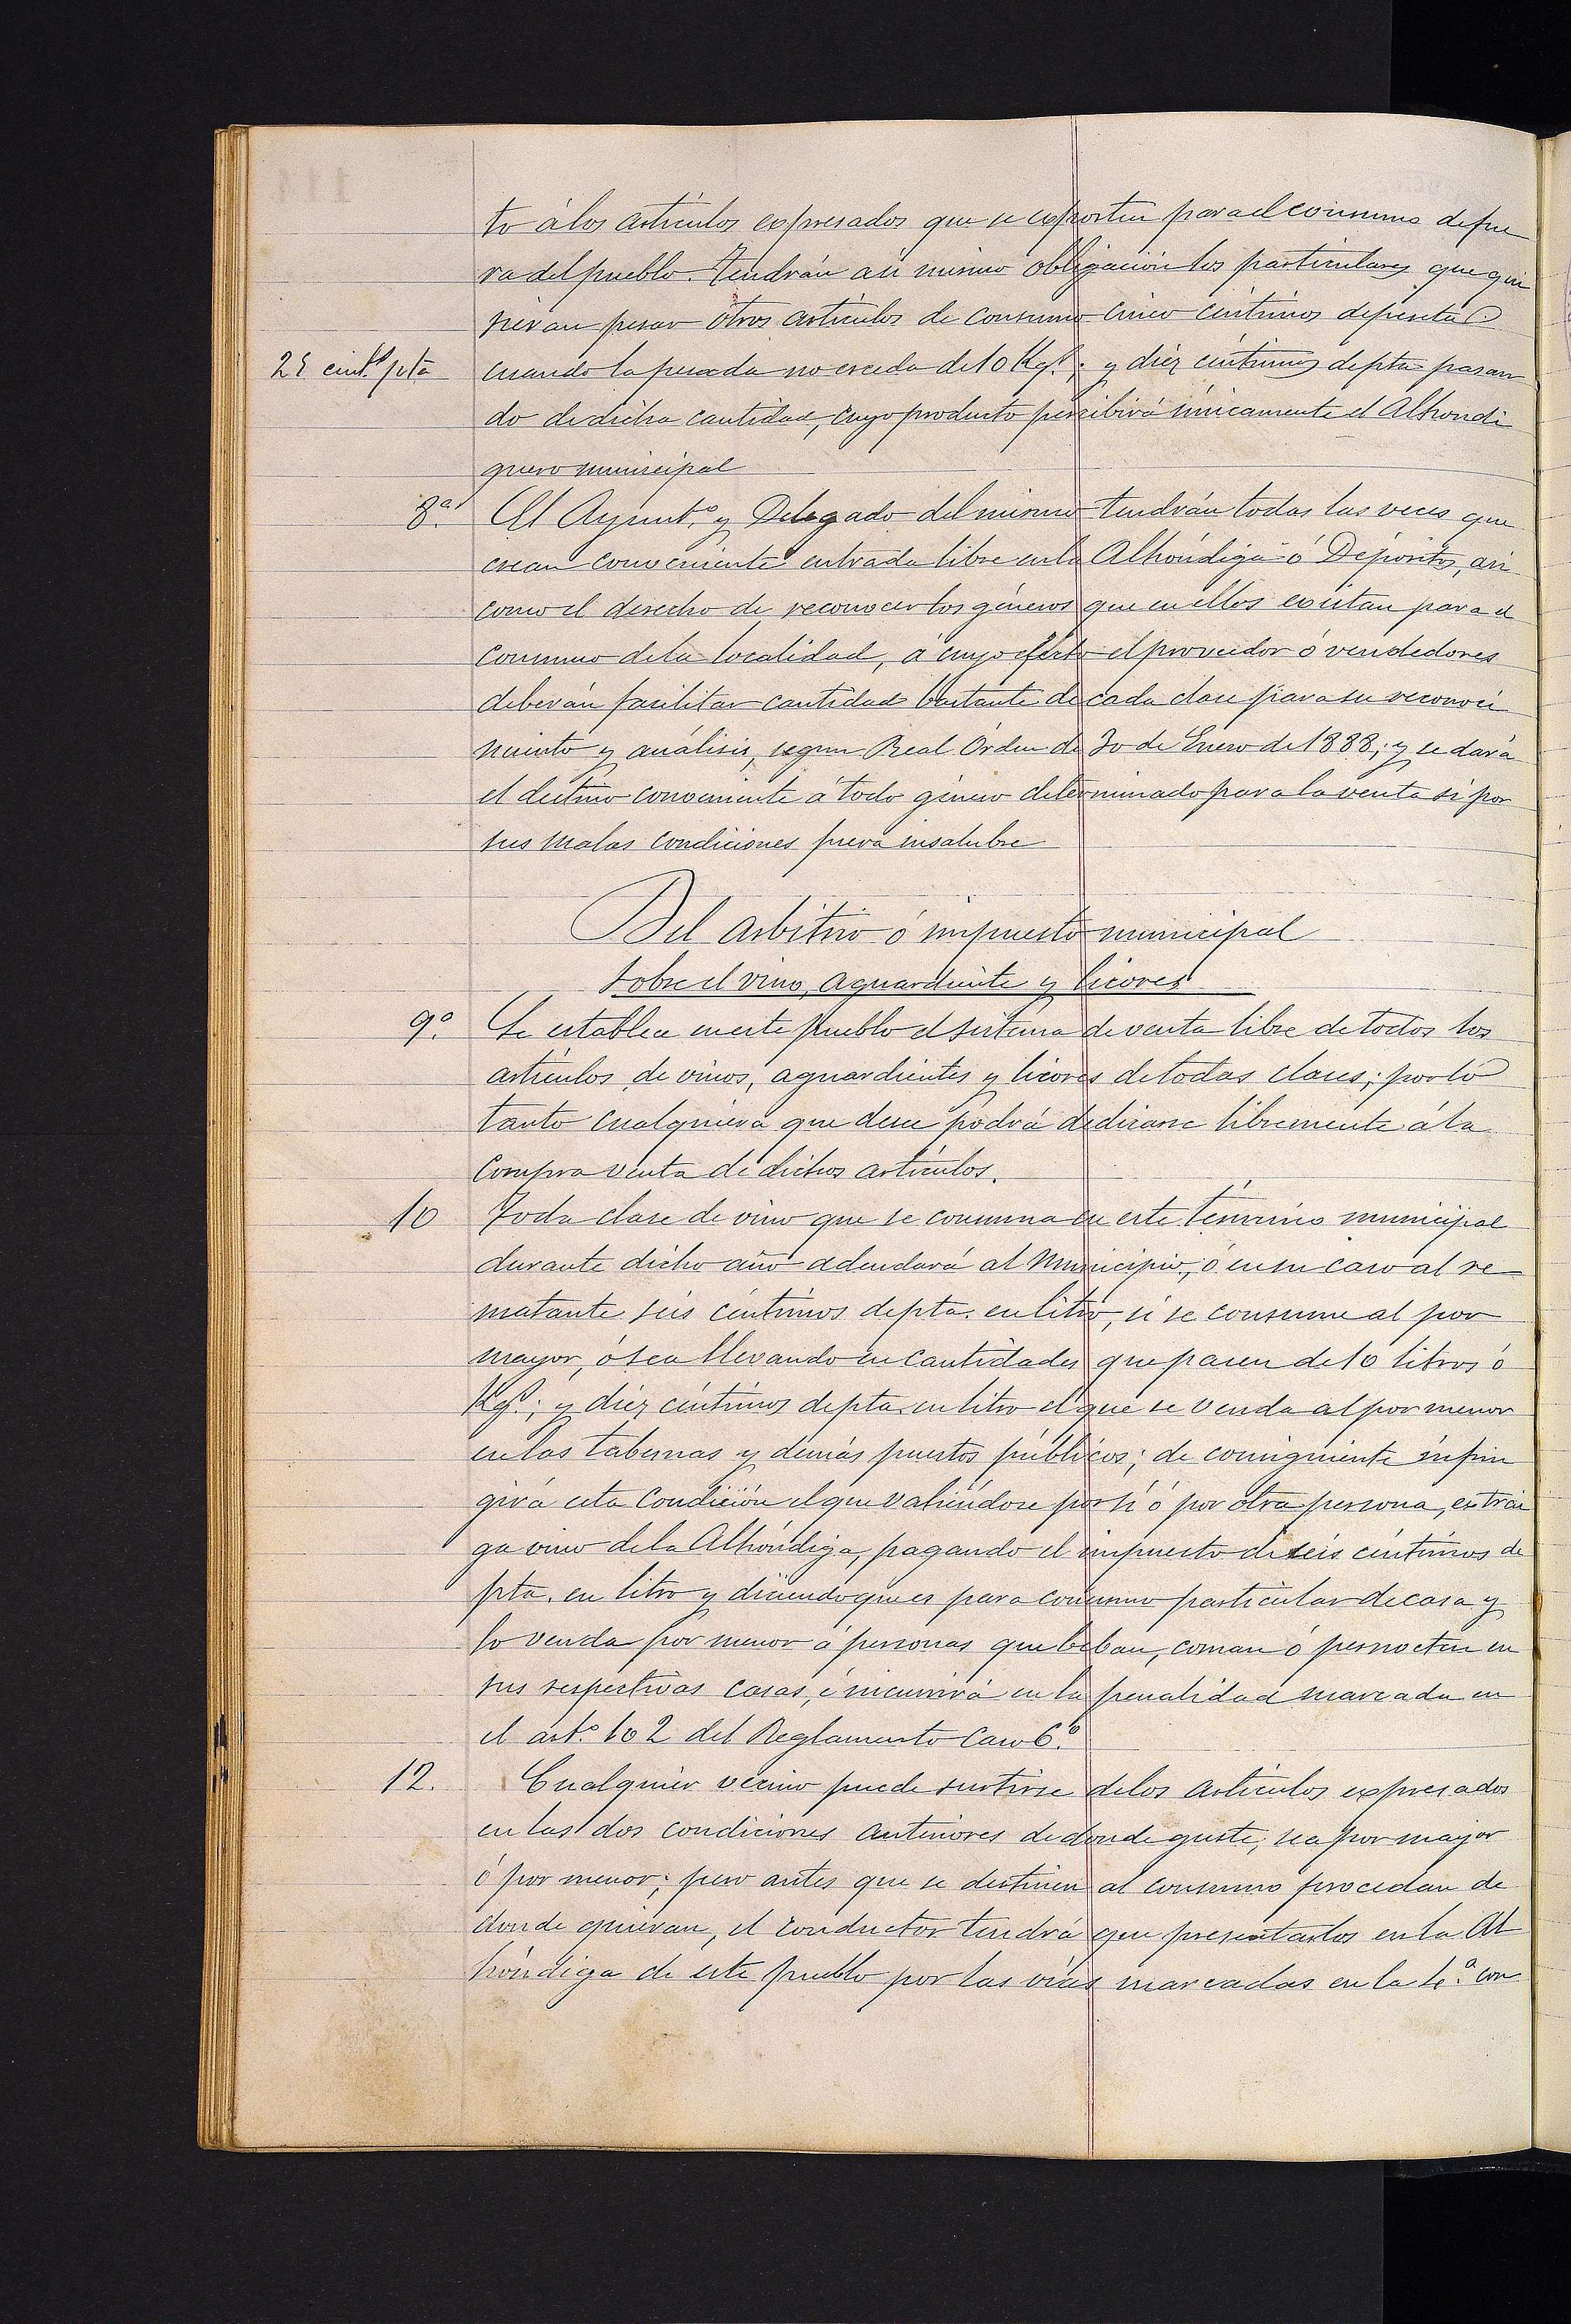 to á los artículos expresados que se exporten para el consumo de fue
ra del pueblo. Tendrán así mismo obligación los particulares que qui
sieran pesar otros artículos de consumo cinco céntimos de peseta
25 cént.s pta cuando la pesada no exceda de 10 Kg.s; y diez céntimos de pta pasan
do de dicha cantidad, cuyo producto percibirá únicamente el Alhondi
guero municipal
8.ª El Ayunt.º y Delegado del mismo tendrán todas las veces que
crean conveniente entrada libre en la Alhóndiga ó Depósitos, así
como el derecho de reconocer los géneros que en ellos existan para el
consumo de la localidad, á cuyo efecto el proveedor ó vendedores
deberán facilitar cantidad bastante de cada clase para su reconoci
miento y análisis, segun Real Órden de 30 de Enero de 1888; y se dará
el destino conveniente á todo género determinado para la venta si por
sus malas condiciones fuera insalubre
Del arbitrio ó impuesto municipal
sobre el vino, aguardiente y licores
9.º Se establece en este pueblo el sistema de venta libre de todos los
artículos de vinos, aguardientes y licores de todas clases; por lo
tanto cualquiera que desee podrá dedicarse libremente á la
compra venta de dichos artículos.
10 Toda clase de vino que se consuma en este término municipal
durante dicho año adeudará al Municipio, ó en su caso al re
matante seis céntimos de pta. en litro, si se consume al por
mayor, ó sea llevando en cantidades que pasen de 10 litros ó
Kg.s; y diez céntimos de pta. en litro el que se venda al por menor
en las tabernas y demás puestos públicos; de consiguiente infrin
girá esta condición el que valiéndose por sí ó por otra persona, extrai
ga vino de la Alhóndiga, pagando el impuesto de seis céntimos de
pta. en litro y diciendo que es para consumo particular de casa y
lo venda por menor á personas que beban, coman ó pernocten en
sus respectivas casas, é incurrirá en la penalidad marcada en
el art.º 102 del Reglamento caso 6.º
12. Cualquier vecino puede surtirse de los artículos expresados
en las dos condiciones anteriores de donde guste, sea por mayor
ó por menor; pero antes que se destinen al consumo procedan de
donde quieran, el conductor tendrá que presentarlos en la Al
hóndiga de este pueblo por las vías marcadas en la 1.ª con